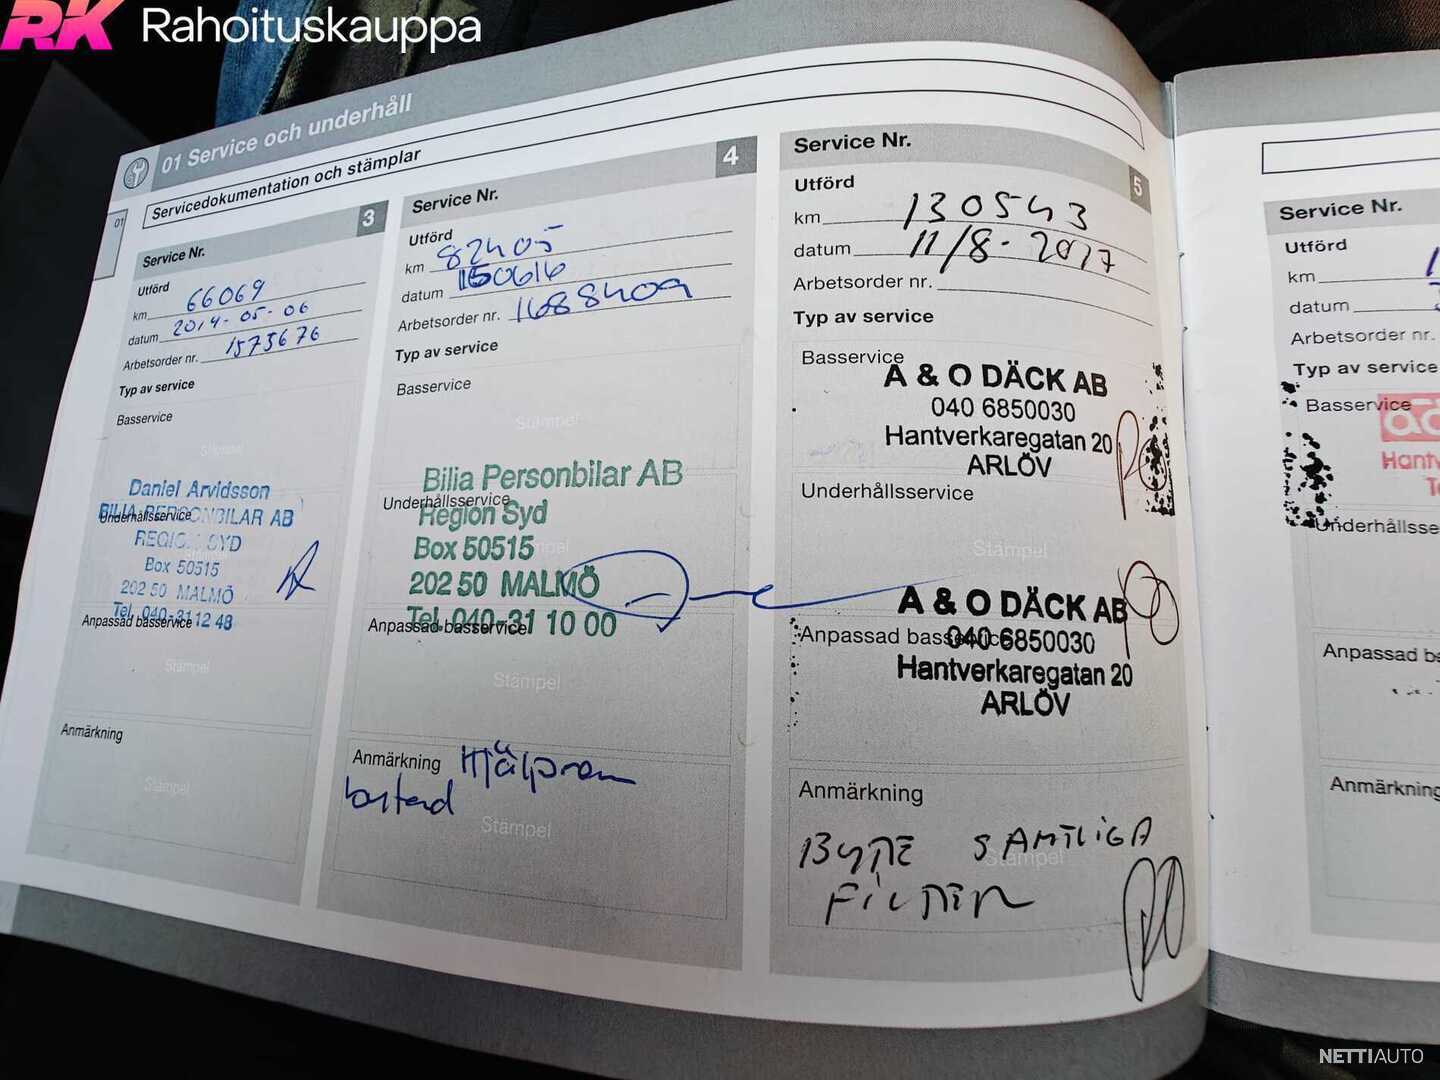 RK Rahoituskauppa
01 Service och underhåll
Servicedokumentation och stämplar
01
Service Nr. 3
Utförd
km 66069
datum 2014-05-06
Arbetsorder nr. 1575676
Typ av service
Basservice
Stämpel
Daniel Arvidsson
Underhållsservice
BILIA PERSONBILAR AB
REGION SYD
Box 50515
202 50 MALMÖ
Tel. 040-31 12 48
Anpassad basservice
Stämpel
Anmärkning
Stämpel
Service Nr. 4
Utförd
km 82405
datum 150616
Arbetsorder nr. 1688409
Typ av service
Basservice
Stämpel
Bilia Personbilar AB
Underhållsservice
Region Syd
Box 50515
202 50 MALMÖ
Tel. 040-31 10 00
Anpassad basservice
Stämpel
Anmärkning Hjälprem
bytad
Stämpel
Service Nr. 5
Utförd
km 130543
datum 11/8-2017
Arbetsorder nr.
Typ av service
Basservice
A & O DÄCK AB
040 6850030
Hantverkaregatan 20
ARLÖV
Underhållsservice
Stämpel
A & O DÄCK AB
Anpassad basservice
040 6850030
Hantverkaregatan 20
ARLÖV
Anmärkning
BYTTE SAMTLIGA
Stämpel
FILTER
Service Nr.
Utförd
km
datum
Arbetsorder nr.
Typ av service
Basservice
Hantv
Te
Underhållsse
Anpassad ba
Anmärkning
NETTIAUTO